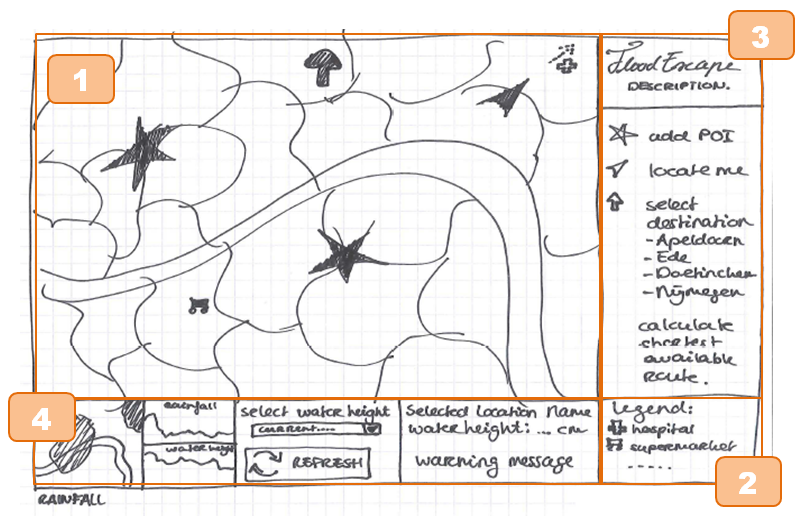 1
3
FloodEscape
DESCRIPTION.
add POI
locate me
select
destination
- Apeldoorn
- Ede
- Doetinchem
- Nijmegen
calculate
shortest
available
route.
4
rainfall
water height
RAINFALL
select water height
current....
REFRESH
Selected Location Name
water height: ... cm
warning message
Legend:
hospital
supermarket
.....
2